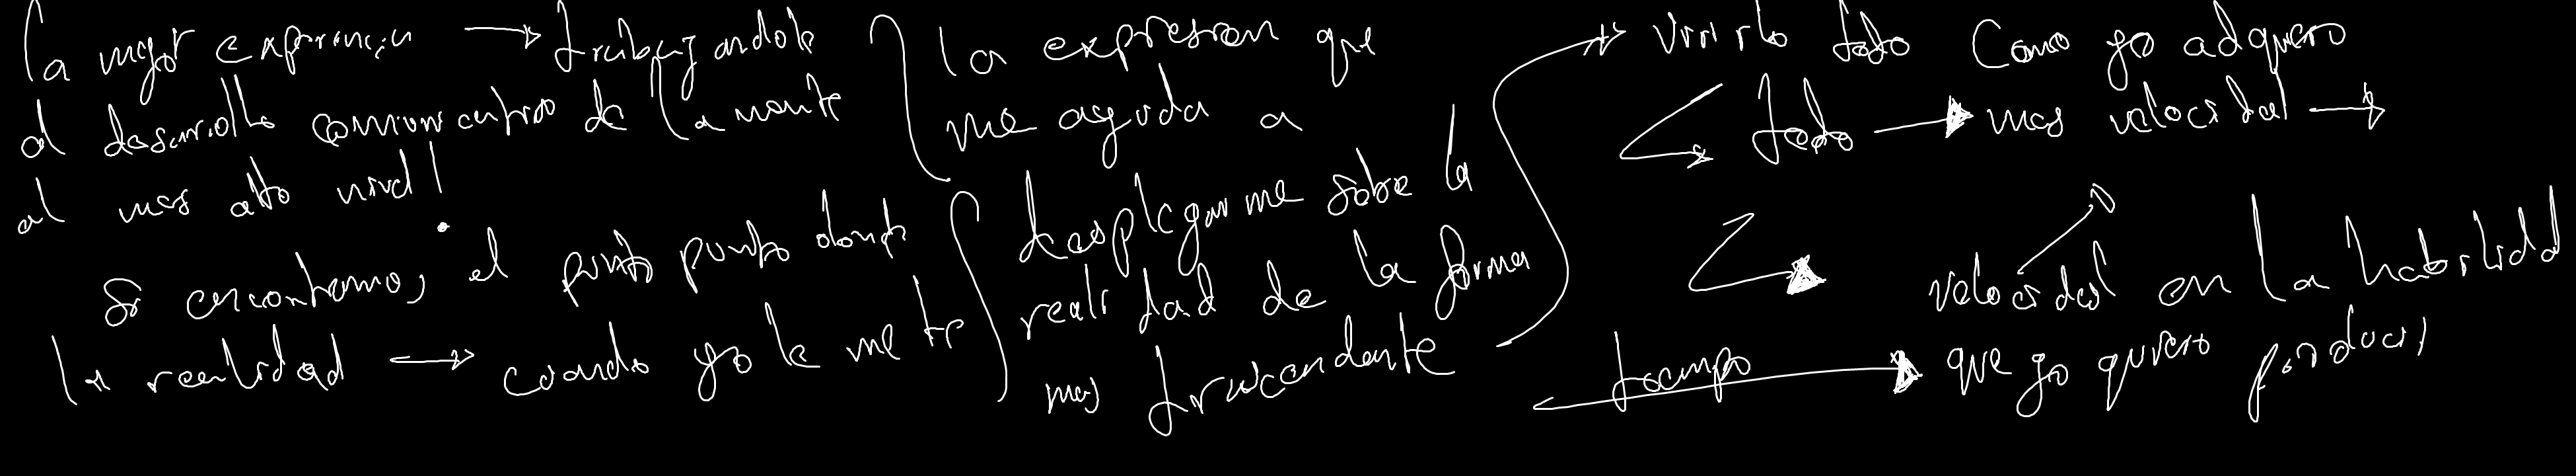 La mejor experiencia → trabajandole
al desarrollo comunicativo de la mente
al mas alto nivel
Si encontramos el punto punto donde
la realidad → cuando yo le mete
la expresion que
me ayuda a
desplegarme sobre la
realidad de la forma
mas trascendente
→ vivirlo todo Como yo adquiero
todo → mas velocidad →
velocidad en la habilidad
tiempo → que yo quiero producir